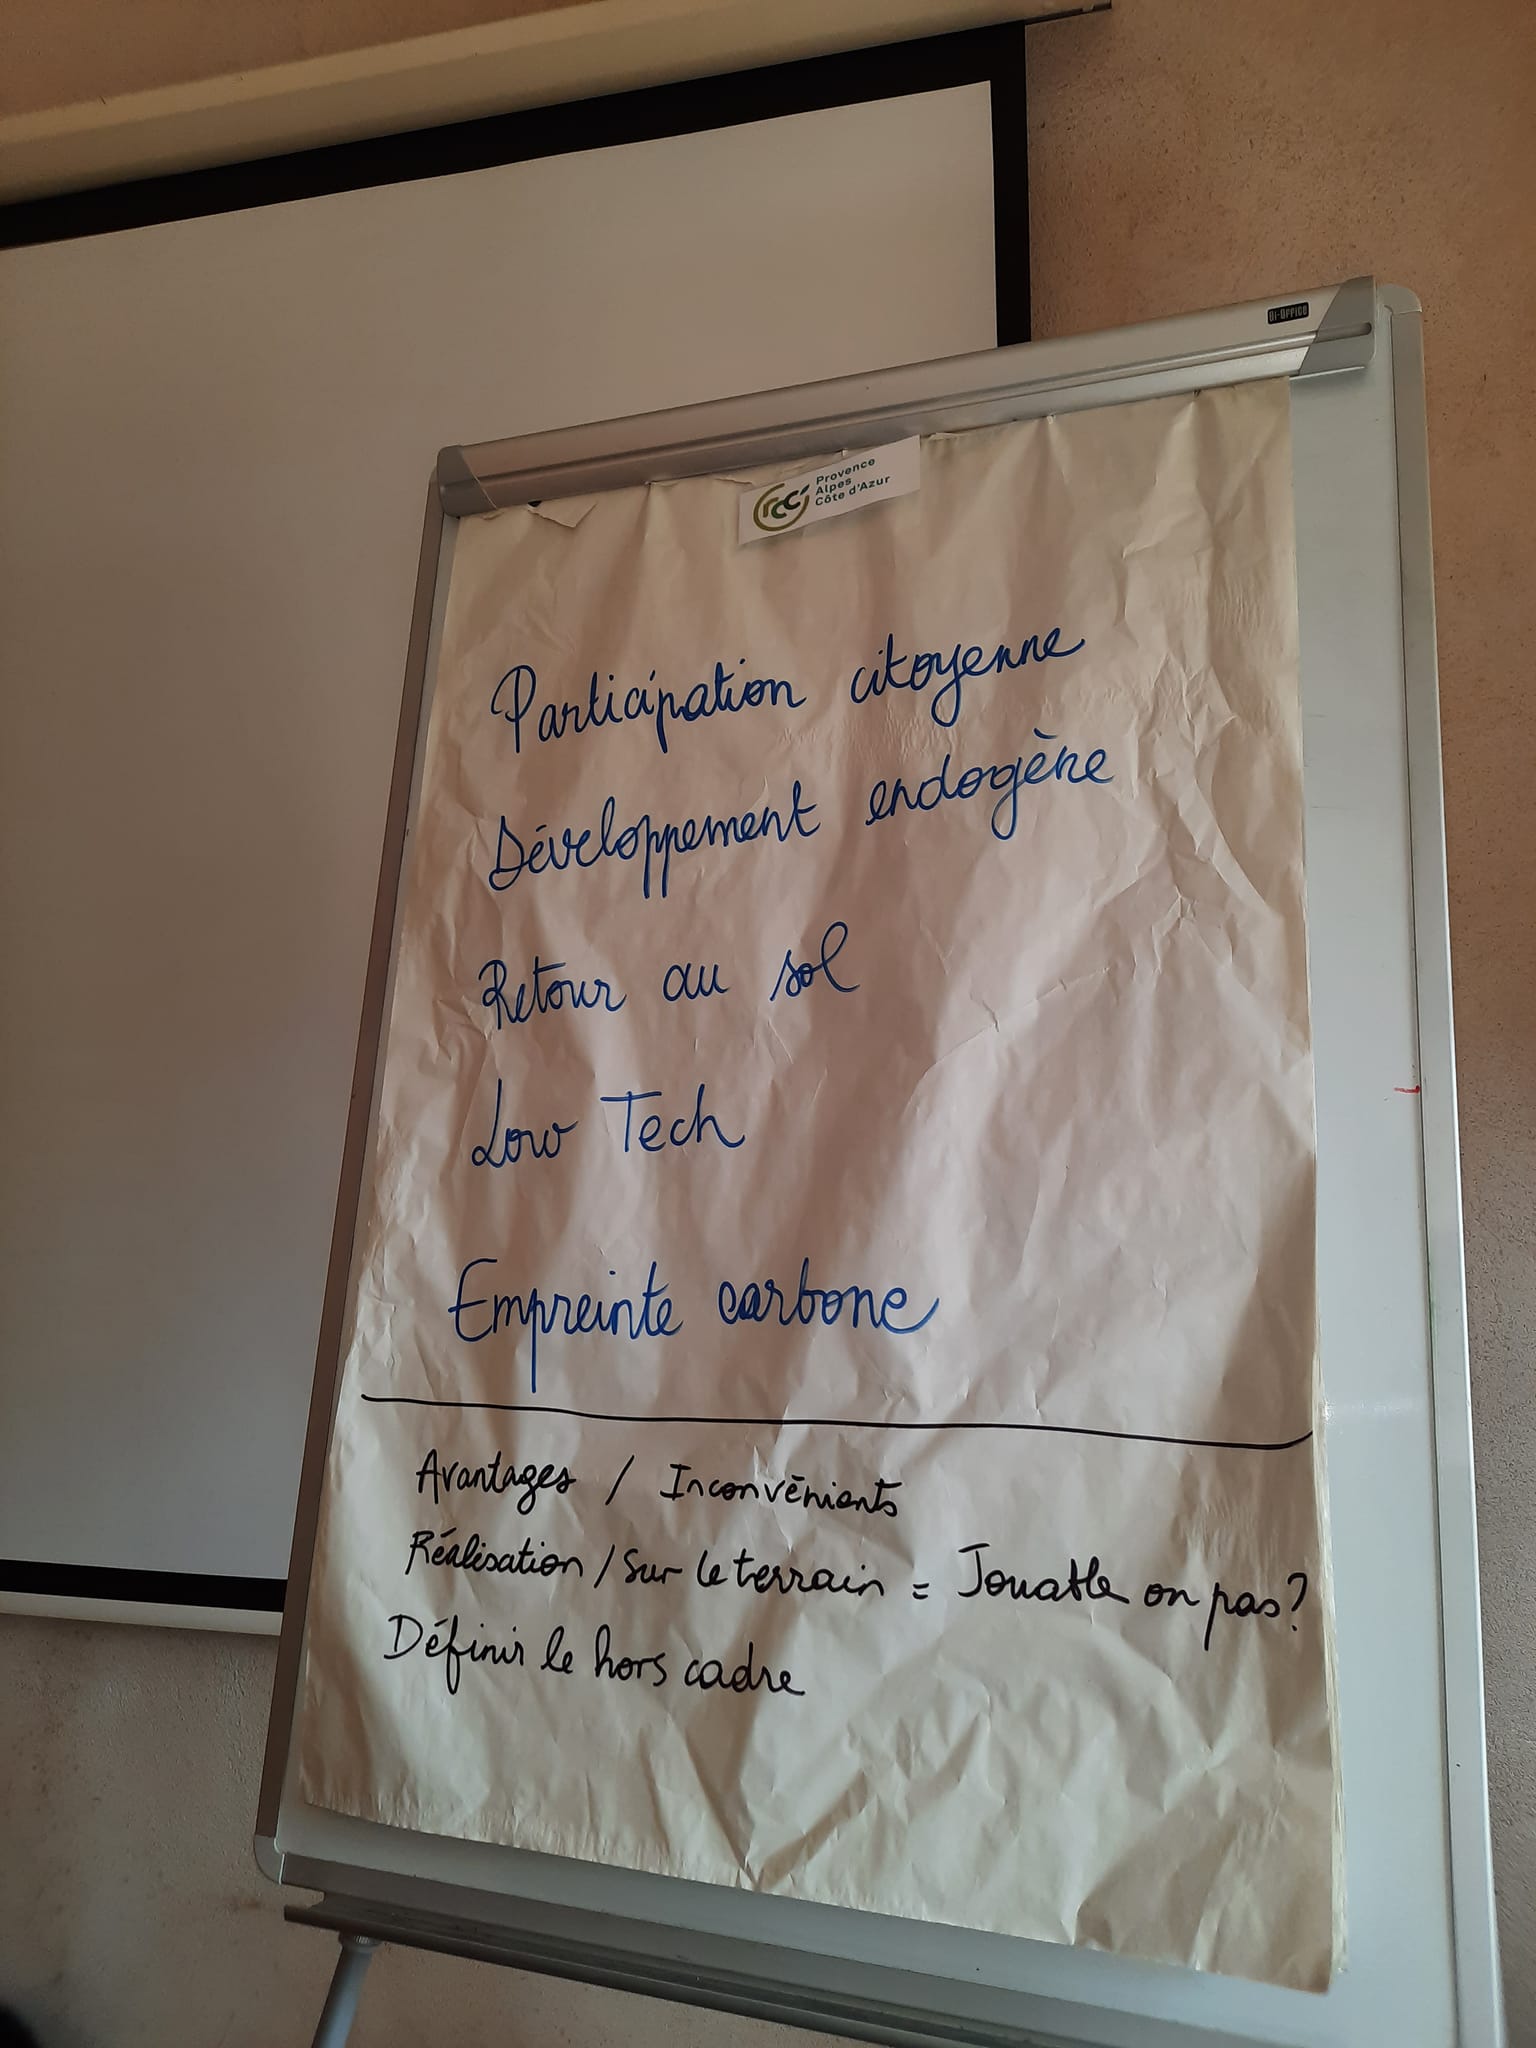 Bi-Office
rcc
Provence
Alpes
Côte d'Azur
Participation citoyenne
Développement endogène
Retour au sol
Low Tech
Empreinte carbone
Avantages / Inconvénients
Réalisation / Sur le terrain = Jouable ou pas?
Définir le hors cadre